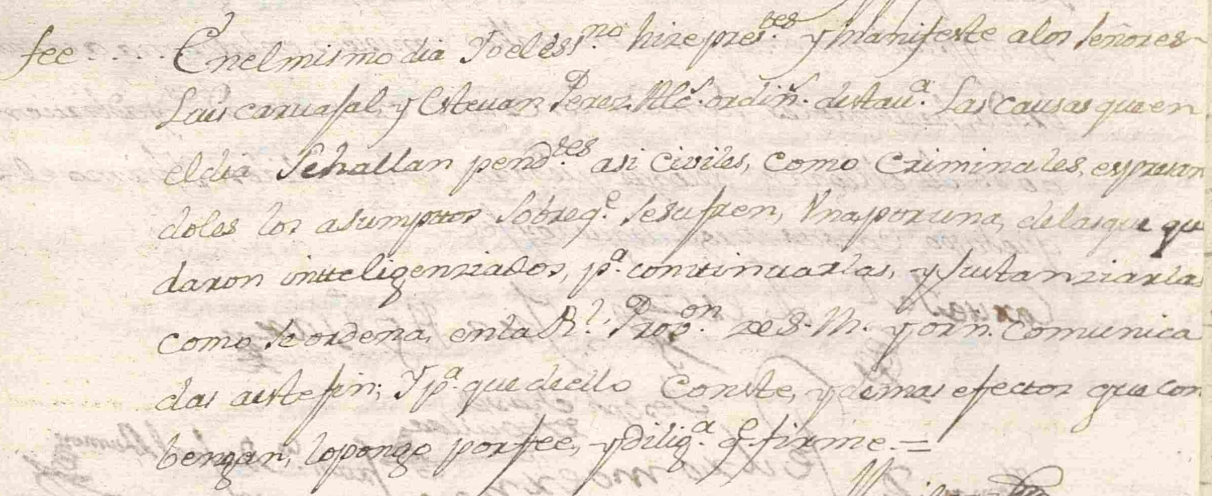 fee.... En el mismo dia Yo el dss.no hize pres.tes y manifeste a los señores
Luis carvajal, y Estevan Perez Alc.s ordin.s de sta v.a Las causas que en
el dia Se hallan pend.tes asi civiles, como Criminales, expresan
doles los asumptos Sobre q.e Se sufren, Una por una, de las que que
daron intteligenziados, p.a conttinuarlas, y Sustanziarlas
como Se ordena, en la R.l Prov.on de S. M. y orn. Comunica
das a este fin; Y p.a que de ello Conste, y demas efectos que con
bengan, lo pongo por fee, y dilig.a q.e firme.=